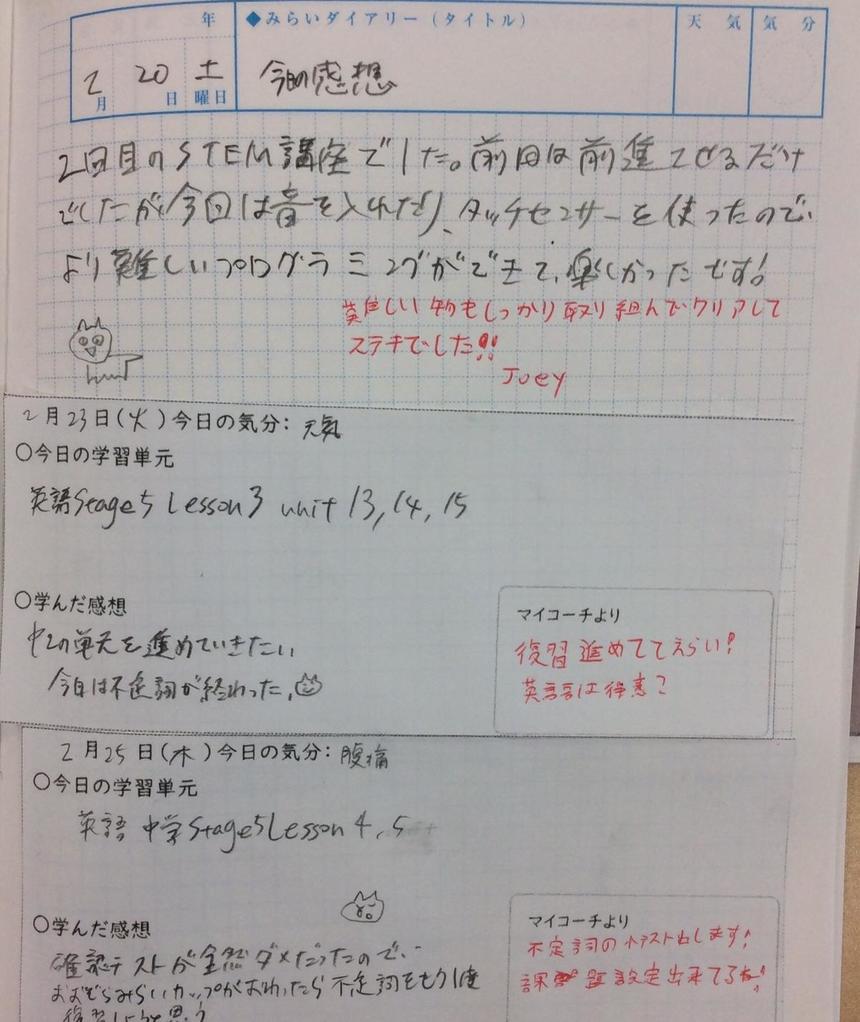 年 ◆みらいダイアリー（タイトル） 天気 気分
2月 20日 土曜日 今日の感想
2回目のSTEM講座でした。前回は前進させるだけ
でしたが今回は音を入れたり、タッチセンサーを使ったので、
より難しいプログラミングができて、楽しかったです!
難しい物もしっかり取り組んでクリアして
ステキでした!!
Joey
2月23日(火)今日の気分: 天気
○今日の学習単元
英語Stage5 Lesson3 unit 13, 14, 15
○学んだ感想
中2の単元を進めていきたい
今日は不定詞が終わった。
マイコーチより
復習進めててえらい!
英語は得意?
2月25日(木)今日の気分: 腹痛
○今日の学習単元
英語 中学Stage5Lesson 4, 5
○学んだ感想
確認テストが全然ダメだったので、
おおむらみらいカップがおわったら不定詞をもう1度
復習しようと思う
マイコーチより
不定詞の小テスト出します!
課題設定出来てるね!